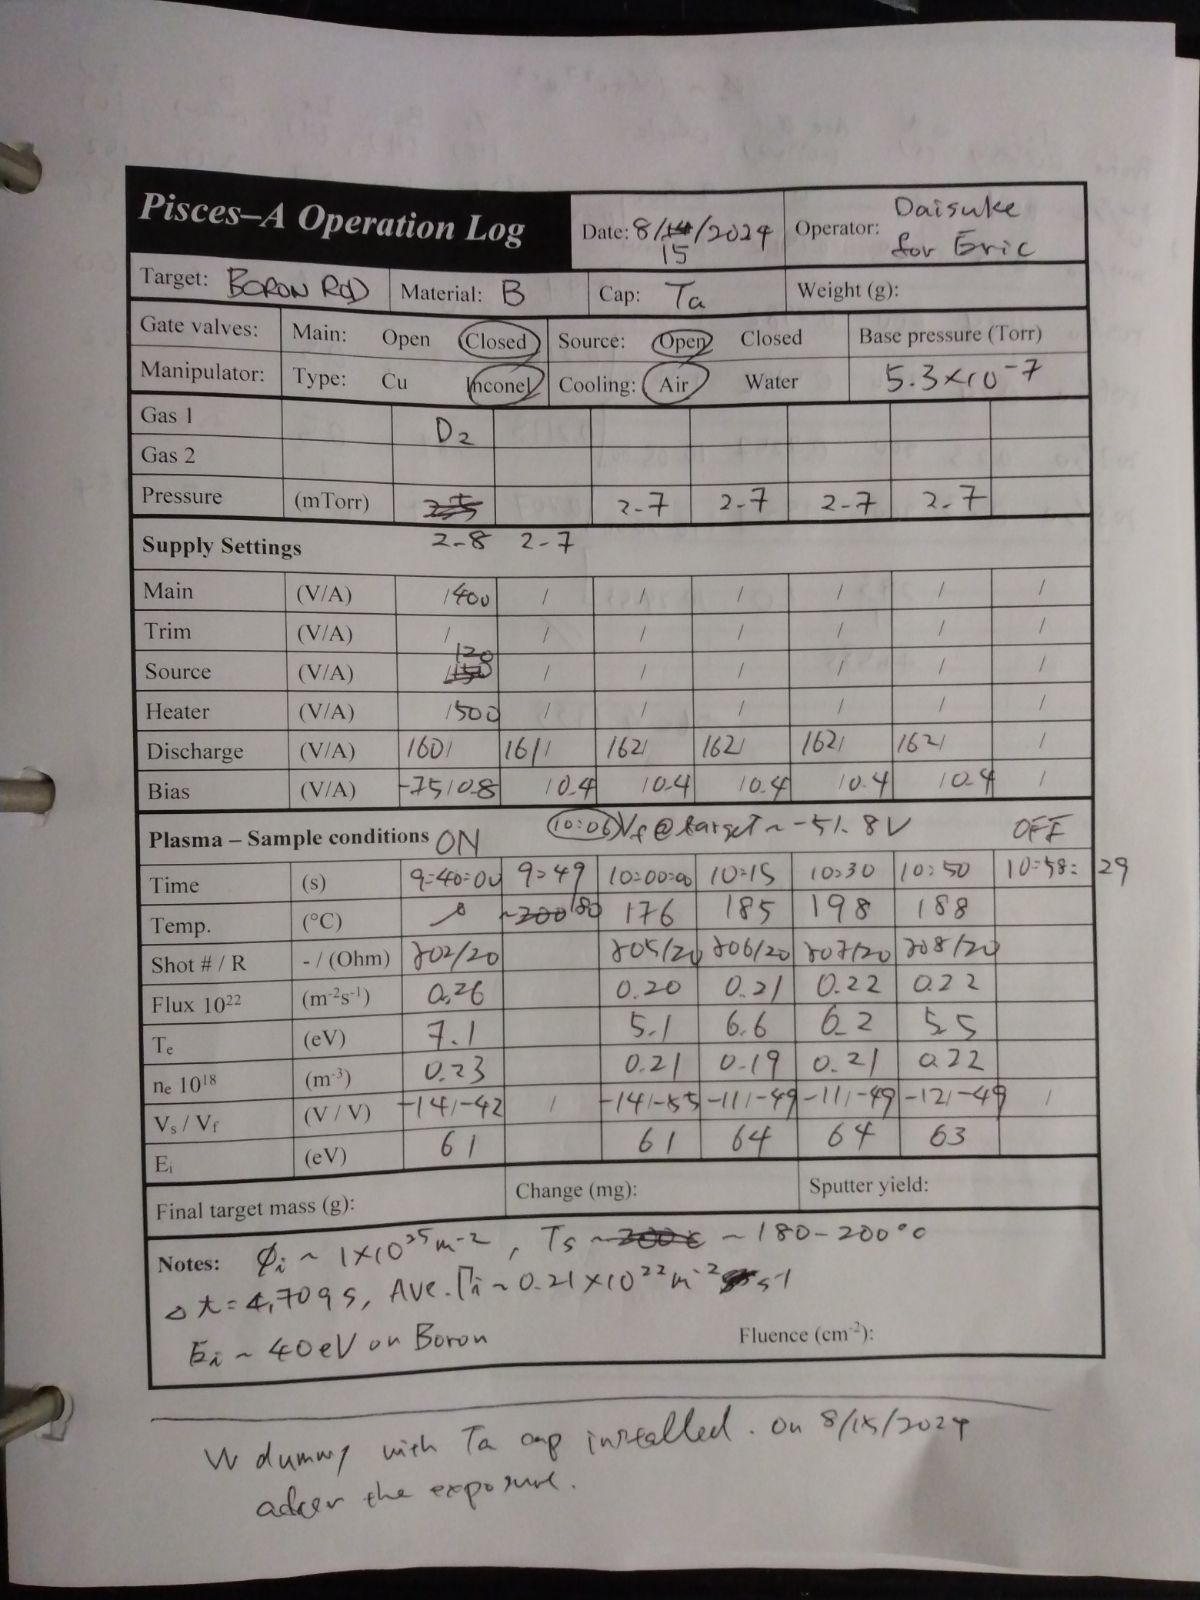 Pisces–A Operation Log Date: 8/14/2024 Operator: Daisuke
15 for Eric
Target: BORON ROD Material: B Cap: Ta Weight (g):
Gate valves: Main: Open Closed Source: Open Closed Base pressure (Torr)
Manipulator: Type: Cu Inconel Cooling: Air Water 5.3×10⁻⁷
Gas 1 D2
Gas 2
Pressure (mTorr) 2.5 2.7 2.7 2.7 2.7
Supply Settings 2.8 2.7
Main (V/A) /400 / / / / / /
Trim (V/A) / / / / / / /
120
Source (V/A) /150 / / / / / /
Heater (V/A) /500 / / / / / /
Discharge (V/A) 160/ 161/ 162/ 162/ 162/ 162/ /
Bias (V/A) -75/0.8 /0.4 /0.4 /0.4 /0.4 /0.4 /
Plasma – Sample conditions ON 10:06 Vf @ target ~ -51.8V OFF
Time (s) 9:40:00 9:49 10:00:00 10:15 10:30 10:50 10:58:29
Temp. (°C) ~200 180 176 185 198 188
Shot # / R - / (Ohm) 202/20 205/20 206/20 207/20 208/20
Flux 10²² (m⁻²s⁻¹) 0.26 0.20 0.21 0.22 0.22
Te (eV) 7.1 5.1 6.6 6.2 5.5
ne 10¹⁸ (m⁻³) 0.23 0.21 0.19 0.21 0.22
Vs / Vf (V / V) -14/-42 / -14/-55 -11/-49 -11/-49 -12/-49 /
Ei (eV) 61 61 64 64 63
Final target mass (g): Change (mg): Sputter yield:
Notes: Φi ~ 1×10²⁵ m⁻², Ts ~ 200°C ~ 180-200°C
Δt = 4,709 s, Ave. Γi ~ 0.21×10²² m⁻² s⁻¹
Ei ~ 40eV on Boron Fluence (cm⁻²):
W dummy with Ta cap installed. on 8/15/2024
after the exposure.